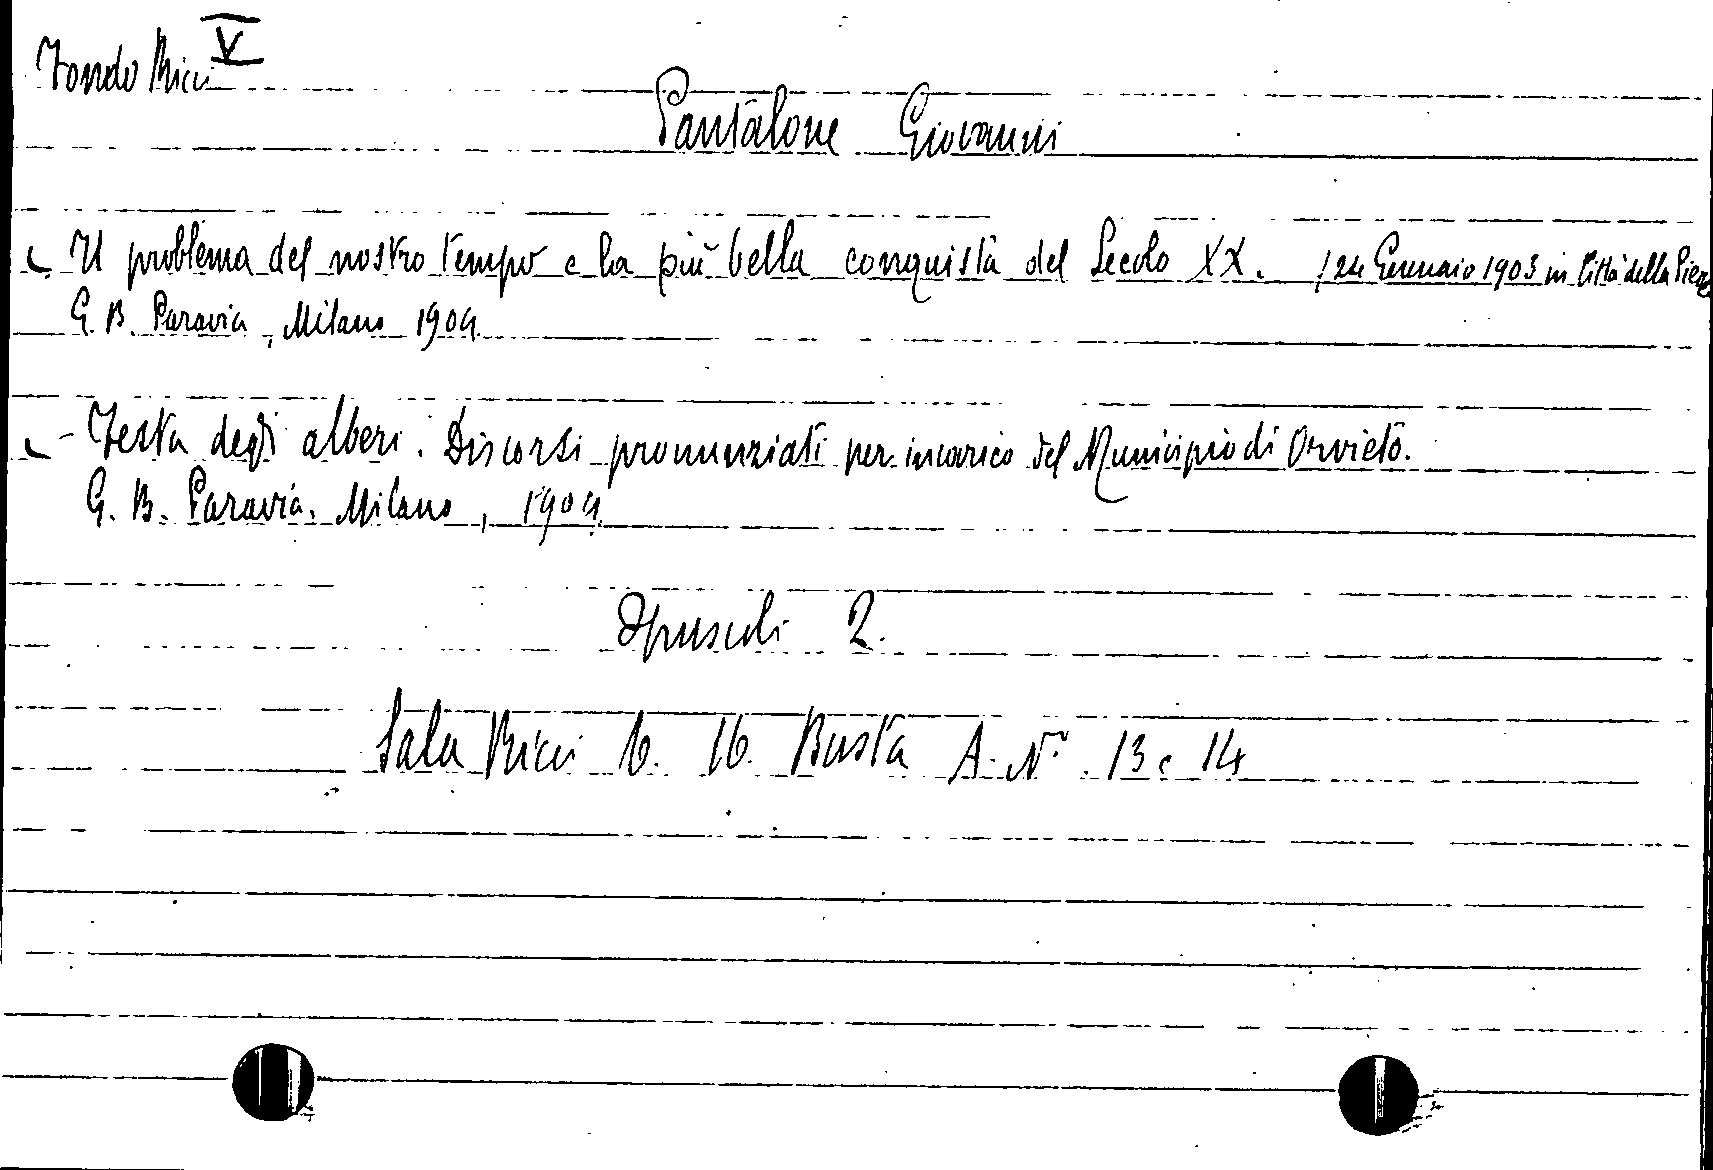 Fondo Ricci V
Pantalone Giovanni
Il problema del nostro tempo e la più bella conquista del Secolo XX. / 24 Gennaio 1903 in Città della Pieve
G. B. Paravia, Milano 1904
- Festa degli alberi. Discorsi pronunziati per incarico del Municipio di Orvieto.
G. B. Paravia. Milano, 1904.
Opuscoli 2.
Sala Ricci 6. 16. Busta A. N.i 13 e 14